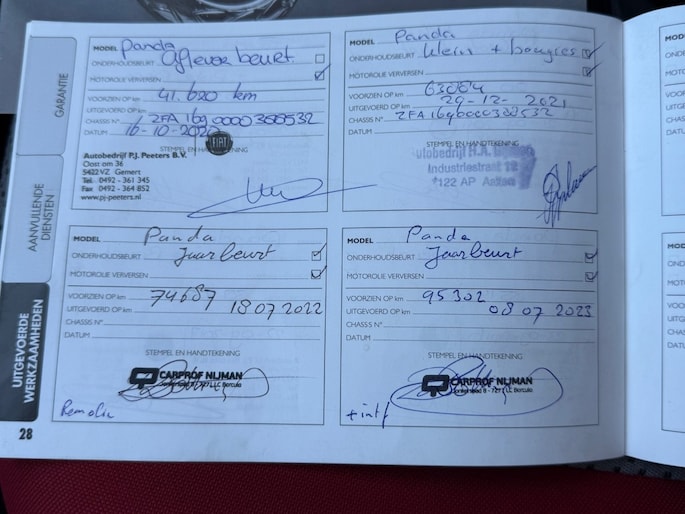 GARANTIE
AANVULLENDE
DIENSTEN
UITGEVOERDE
WERKZAAMHEDEN
28
MODEL Panda
ONDERHOUDSBEURT Aflever beurt
MOTOROLIE VERVERSEN
VOORZIEN OP km 41.620 km
UITGEVOERD OP km
CHASSIS N° ZFA 169 0000
DATUM 16-10-2020
STEMPEL EN HANDTEKENING
FIAT
Autobedrijf P.J. Peeters B.V.
Oost om 36
5422 VZ Gemert
Tel. 0492 - 361 345
Fax 0492 - 364 852
www.pj-peeters.nl
MODEL Panda
ONDERHOUDSBEURT klein + bougies
MOTOROLIE VERVERSEN
VOORZIEN OP km 63084
UITGEVOERD OP km 29-12-2021
CHASSIS N° ZFA 169 0000
DATUM
STEMPEL EN HANDTEKENING
Autobedrijf H.A.
Industriestraat
AP
MODEL Panda
ONDERHOUDSBEURT Jaarbeurt
MOTOROLIE VERVERSEN
VOORZIEN OP km 74687
UITGEVOERD OP km 18 07 2022
CHASSIS N°
DATUM
STEMPEL EN HANDTEKENING
CARPROF NIJMAN
Borculo
Remolie
MODEL Panda
ONDERHOUDSBEURT Jaarbeurt
MOTOROLIE VERVERSEN
VOORZIEN OP km 95302
UITGEVOERD OP km 08 07 2023
CHASSIS N°
DATUM
STEMPEL EN HANDTEKENING
CARPROF NIJMAN
Borculo